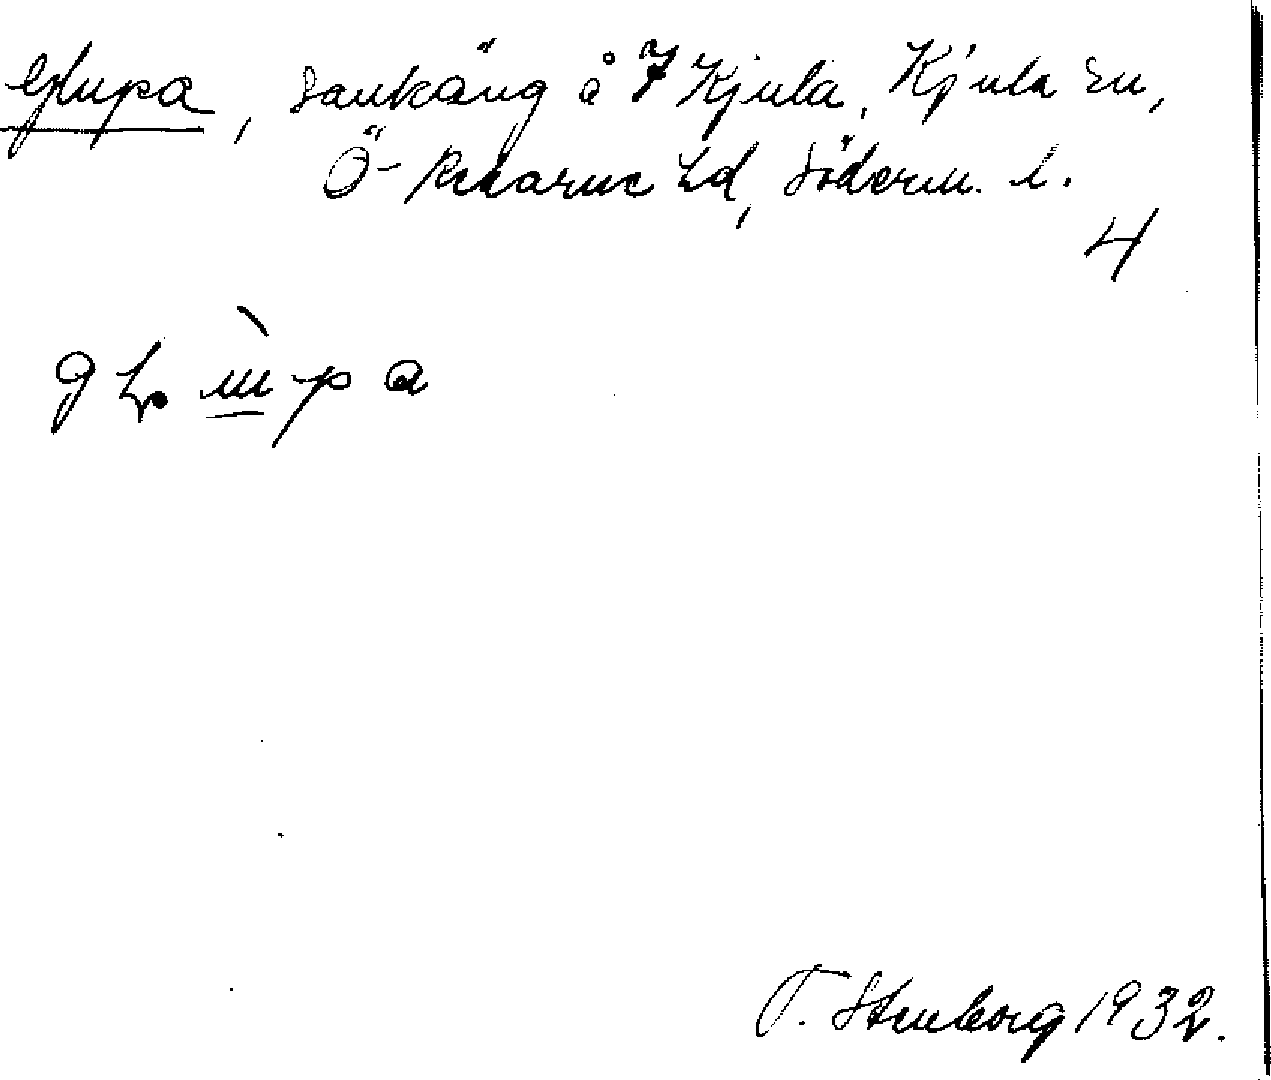 Glupa, Sankäng å 7 Kjula, Kjula sn,
Ö- Rekarne hd, Söderm. l.
4
T. Stenborg 1932.